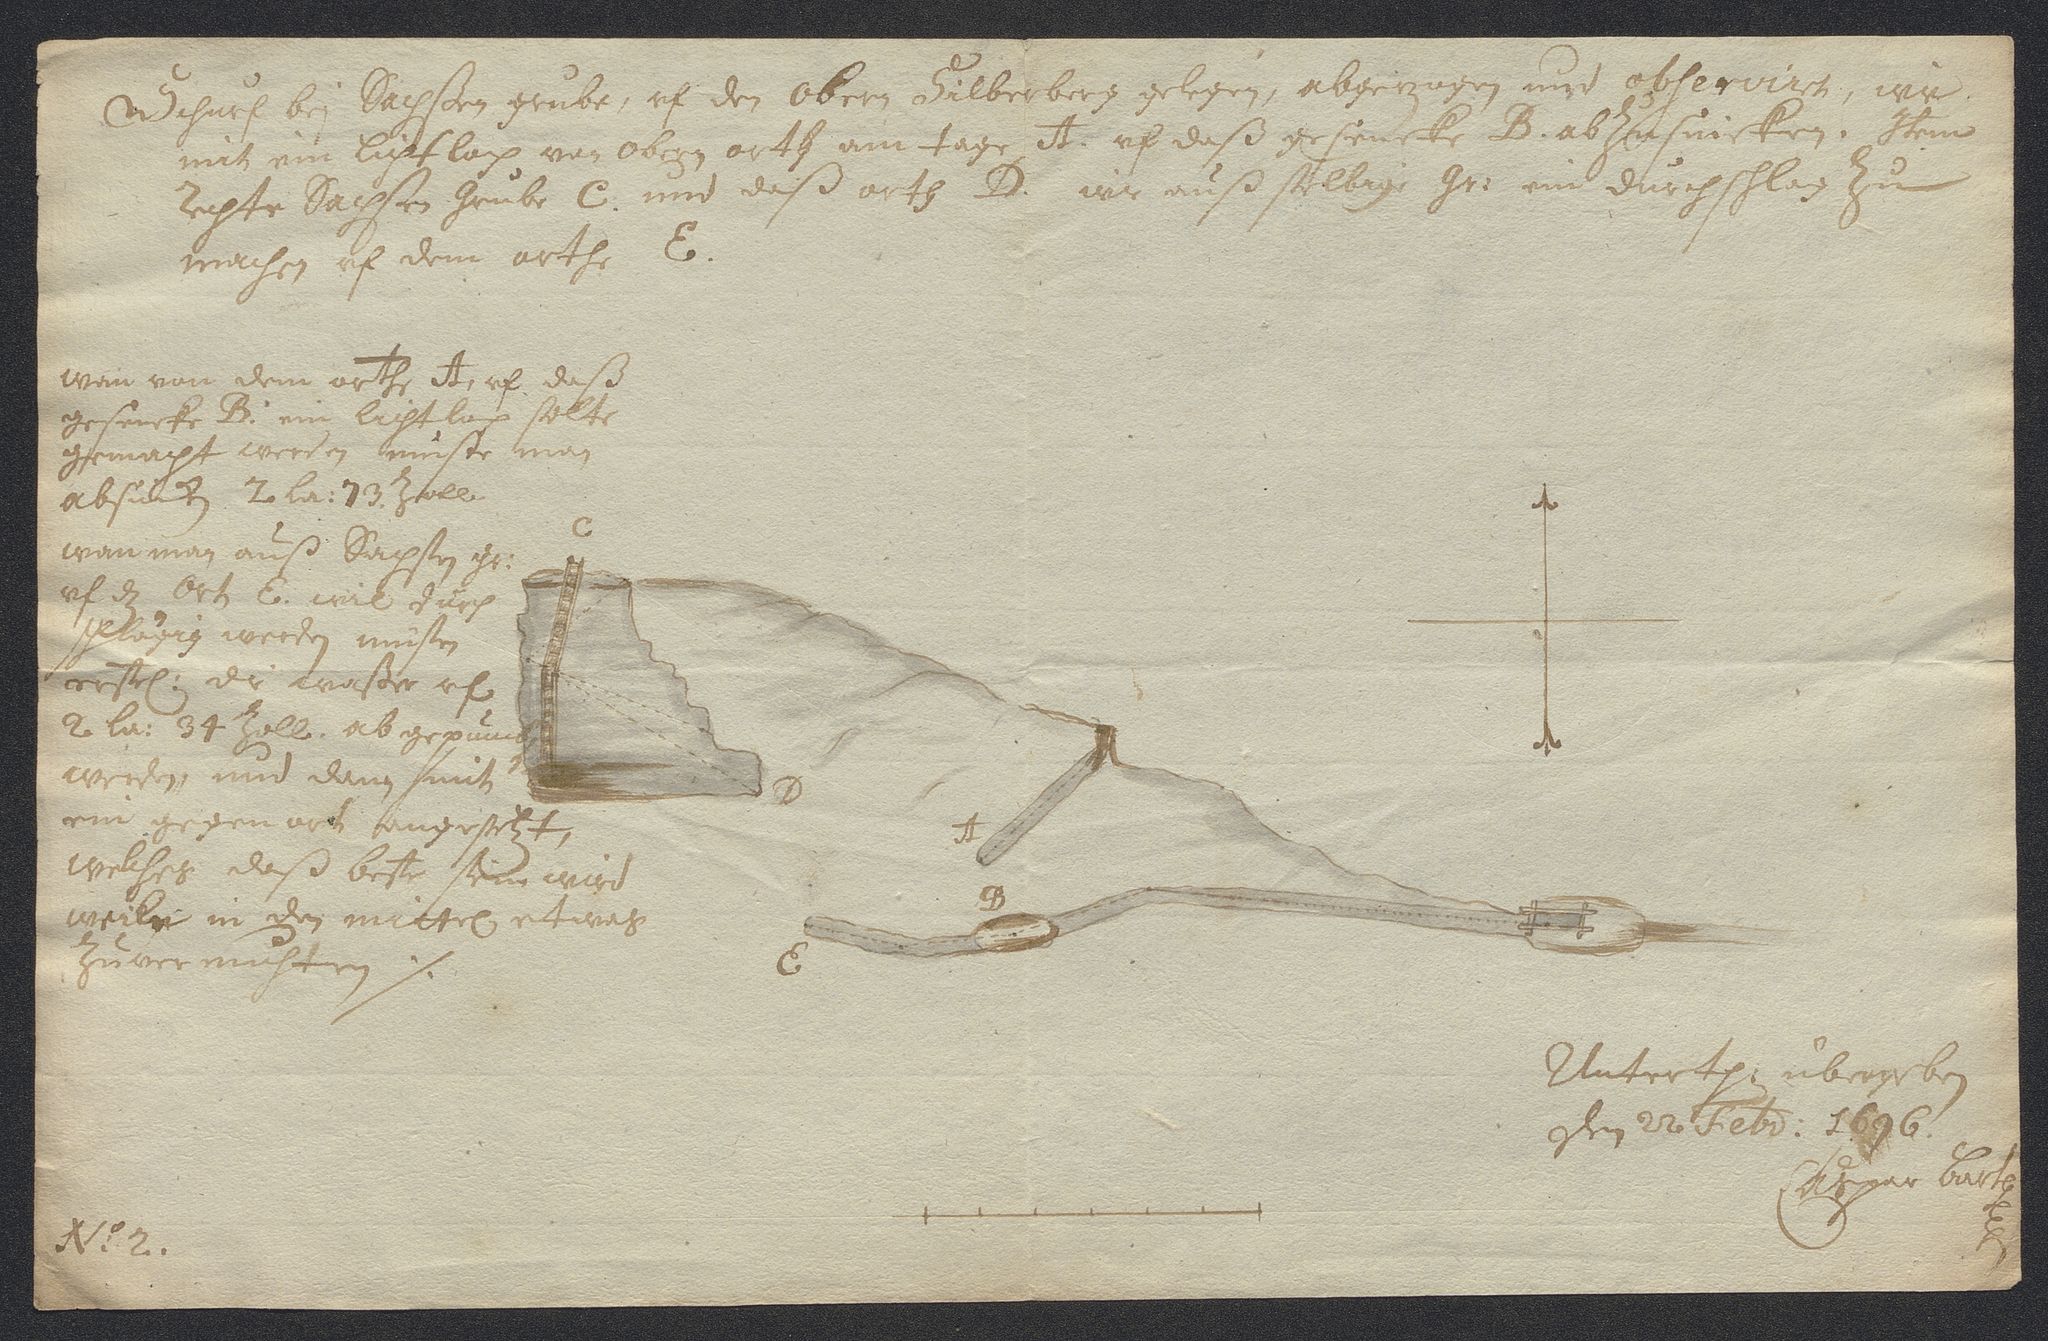 Schurf bei Sachßen grube, uf den Obern Silberberg gelegen, abgezogen und observirt, wie
mit ein lichtloch von obern orth am tage A. uf daß gesencke B. abzusincken. Item
Sachsen Grube C. und daß orth D. wie auß selbige Gr: ein durchschlag zu
machen uf dem orthe E.
wan von dem orthe A. uf daß
gesencke B. ein lichtloch solte
gemacht werden müste man
absincken 2 la: 73. Zoll
wan man auß Sachsen gr:
uf dz Ort E. wil durch
schlägig werden müsten
erstl: die waßer uf
2 la: 34 Zoll. ab
werden, und dann mit
ein gegenort angesetzt,
welches daß beste sein wird
weiln in den mittel etwas
zuvermuhten ./.
C
D
A
B
E
Unterth: übergeben
den 22 Febr: 1696.
Caspar
No. 2.